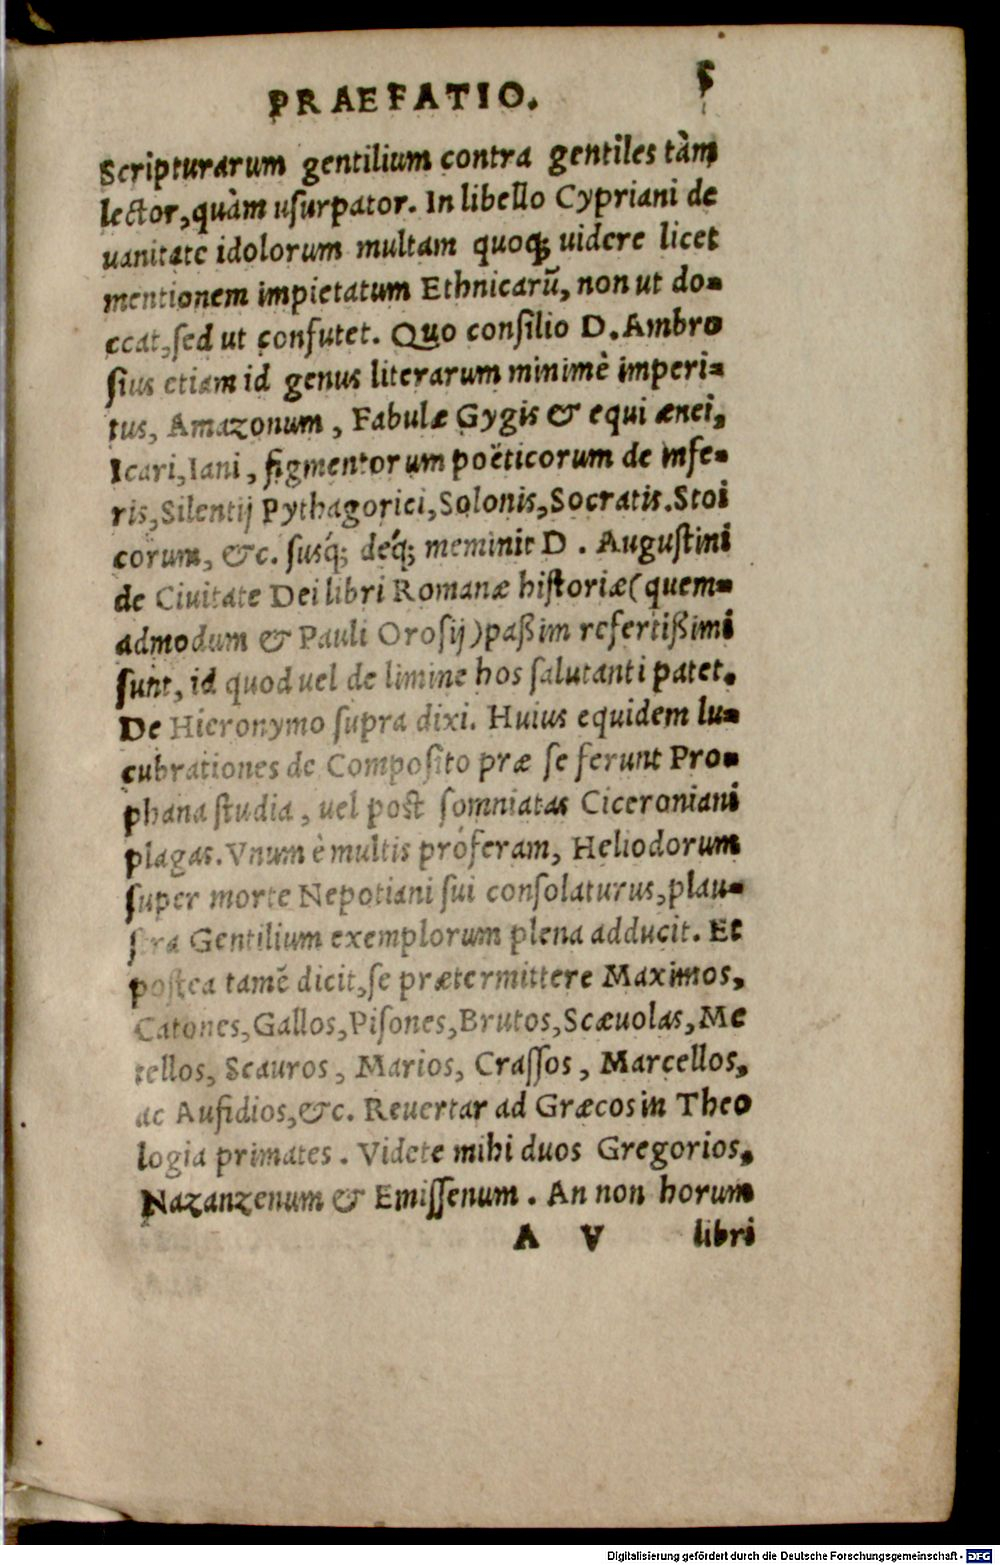 PRAEFATIO. 5
Scripturarum gentilium contra gentiles tàm
lector, quàm uſurpator. In libello Cypriani de
uanitate idolorum multam quoq; uidere licet
mentionem impietatum Ethnicarũ, non ut do-
ceat, ſed ut confutet. Quo conſilio D. Ambro
ſius etiam id genus literarum minimè imperi-
tus, Amazonum, Fabulæ Gygis & equi ænei,
Icari, Iani, figmentorum poëticorum de infe-
ris, Silentij Pythagorici, Solonis, Socratis. Stoi
corum, &c. ſusq́; déq́; meminit D. Auguſtini
de Ciuitate Dei libri Romanæ hiſtoriæ (quem-
admodum & Pauli Oroſij) paßim refertißimi
ſunt, id quod uel de limine hos ſalutanti patet.
De Hieronymo ſupra dixi. Huius equidem lu-
cubrationes de Compoſito præ ſe ferunt Pro-
phana ſtudia, uel poſt ſomniatas Ciceroniani
plagas. Vnum è multis próferam, Heliodorum
ſuper morte Nepotiani ſui conſolaturus, plau-
ſtra Gentilium exemplorum plena adducit. Et
poſtea tamẽ dicit, ſe prætermittere Maximos,
Catones, Gallos, Piſones, Brutos, Scæuolas, Me
tellos, Scauros, Marios, Craſſos, Marcellos,
ac Aufidios, &c. Reuertar ad Græcos in Theo
logia primates. Videte mihi duos Gregorios,
Nazanzenum & Emiſſenum. An non horum
A V libri
Digitalisierung gefördert durch die Deutsche Forschungsgemeinschaft - DFG